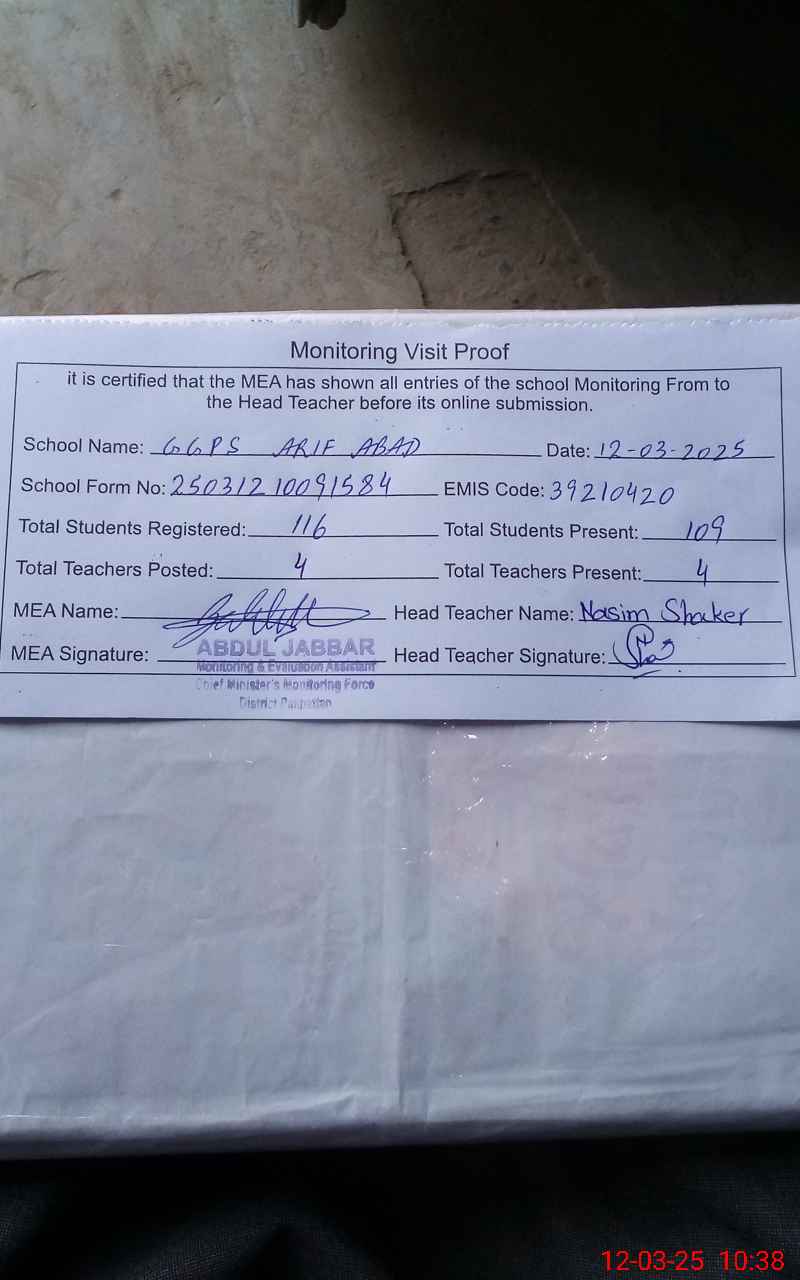 Monitoring Visit Proof
it is certified that the MEA has shown all entries of the school Monitoring From to
the Head Teacher before its online submission.
School Name: GGPS ARIF ABAD Date: 12-03-2025
School Form No: 25031210091584 EMIS Code: 39210420
Total Students Registered: 116 Total Students Present: 109
Total Teachers Posted: 4 Total Teachers Present: 4
MEA Name: Head Teacher Name: Nasim Shaker
ABDUL JABBAR
MEA Signature: Head Teacher Signature:
Monitoring & Evaluation Assistant
Chief Minister's Monitoring Force
District Pakpattan
12-03-25 10:38